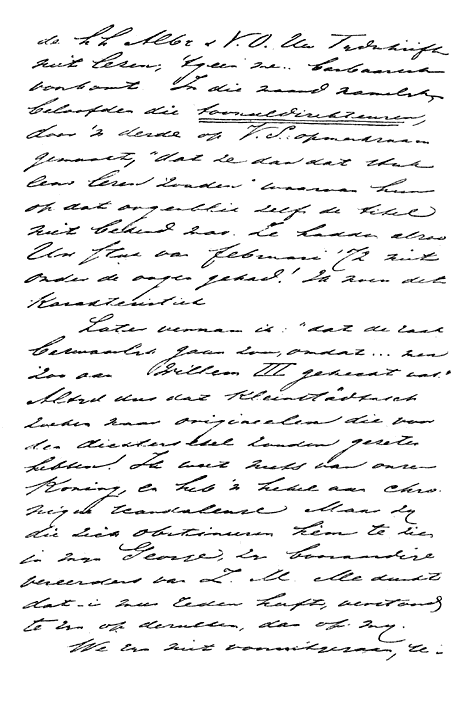 de hh Albr & V. O. Uw Tydschrift
niet lezen, 'tgeen me barbaarsch
voorkomt. In die maand namelyk
beloofden die tooneeldirekteuren,
door 'n derde op V.S. opmerkzaam
gemaakt, "dat ze dan dat stuk
eens lezen zouden" waarvan hun
op dat oogenblik zelfs de titel
niet bekend was. Ze hadden alzoo
Uw stuk van februari '72 niet
onder de oogen gehad! Ik noem dat
karakteristiek
Later vernam ik: "dat de zaak
bezwaarlyk gaan zou, omdat... men
zoo aan Willem III gehecht was."
Altyd dus dat kleinstädtisch
zoeken naar origineelen die voor
den dichterezel zouden gezeten
hebben! Ik weet niets van onzen
Koning, en heb 'n hekel aan chro-
nique scandaleuse Maar zy
die zich obstineeren hem te zien
in myn George, zyn
vereerders van Z. M. Me dunkt
dat-i meer reden heeft, verstoord
te zyn op dezulken, dan op my.
We zyn niet vooruitgegaan,